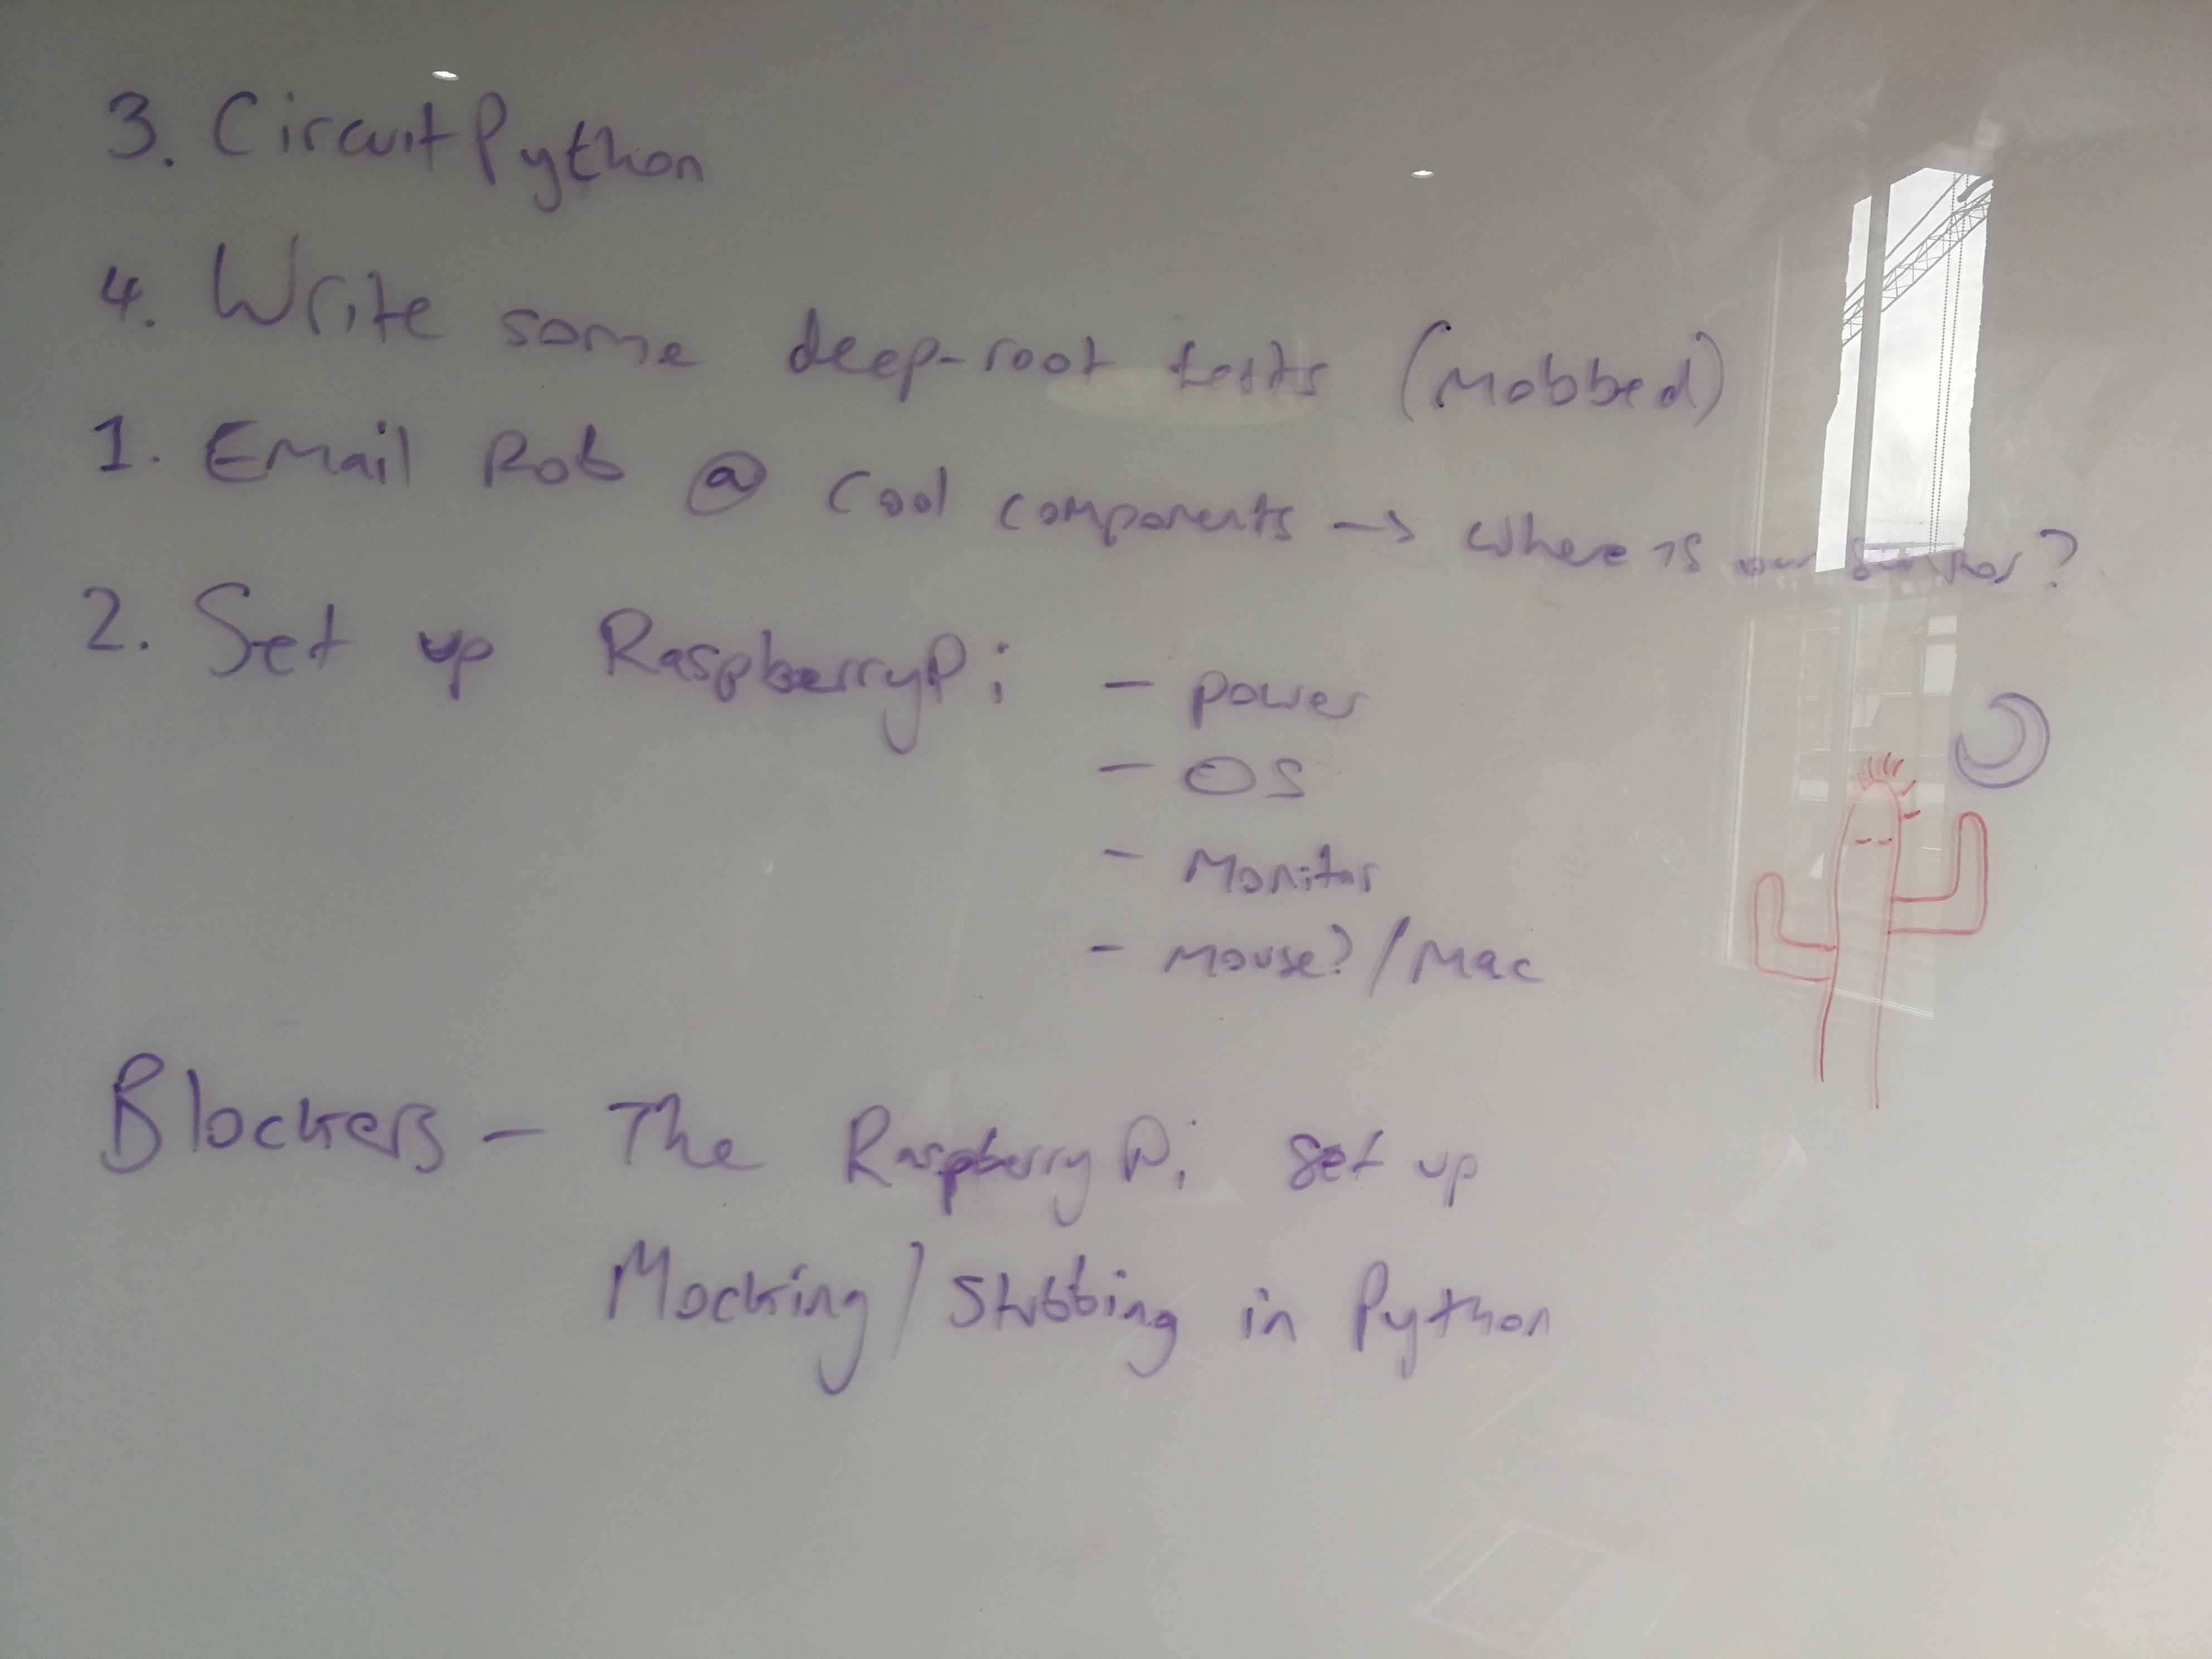 3. CircuitPython
4. Write some deep-root tests (Mobbed)
1. Email Rob @ Cool components → Where is our sensor?
2. Set up RaspberryPi - power
- OS
- Monitor
- Mouse?/Mac
Blockers - The RaspberryPi set up
Mocking/Stubbing in Python